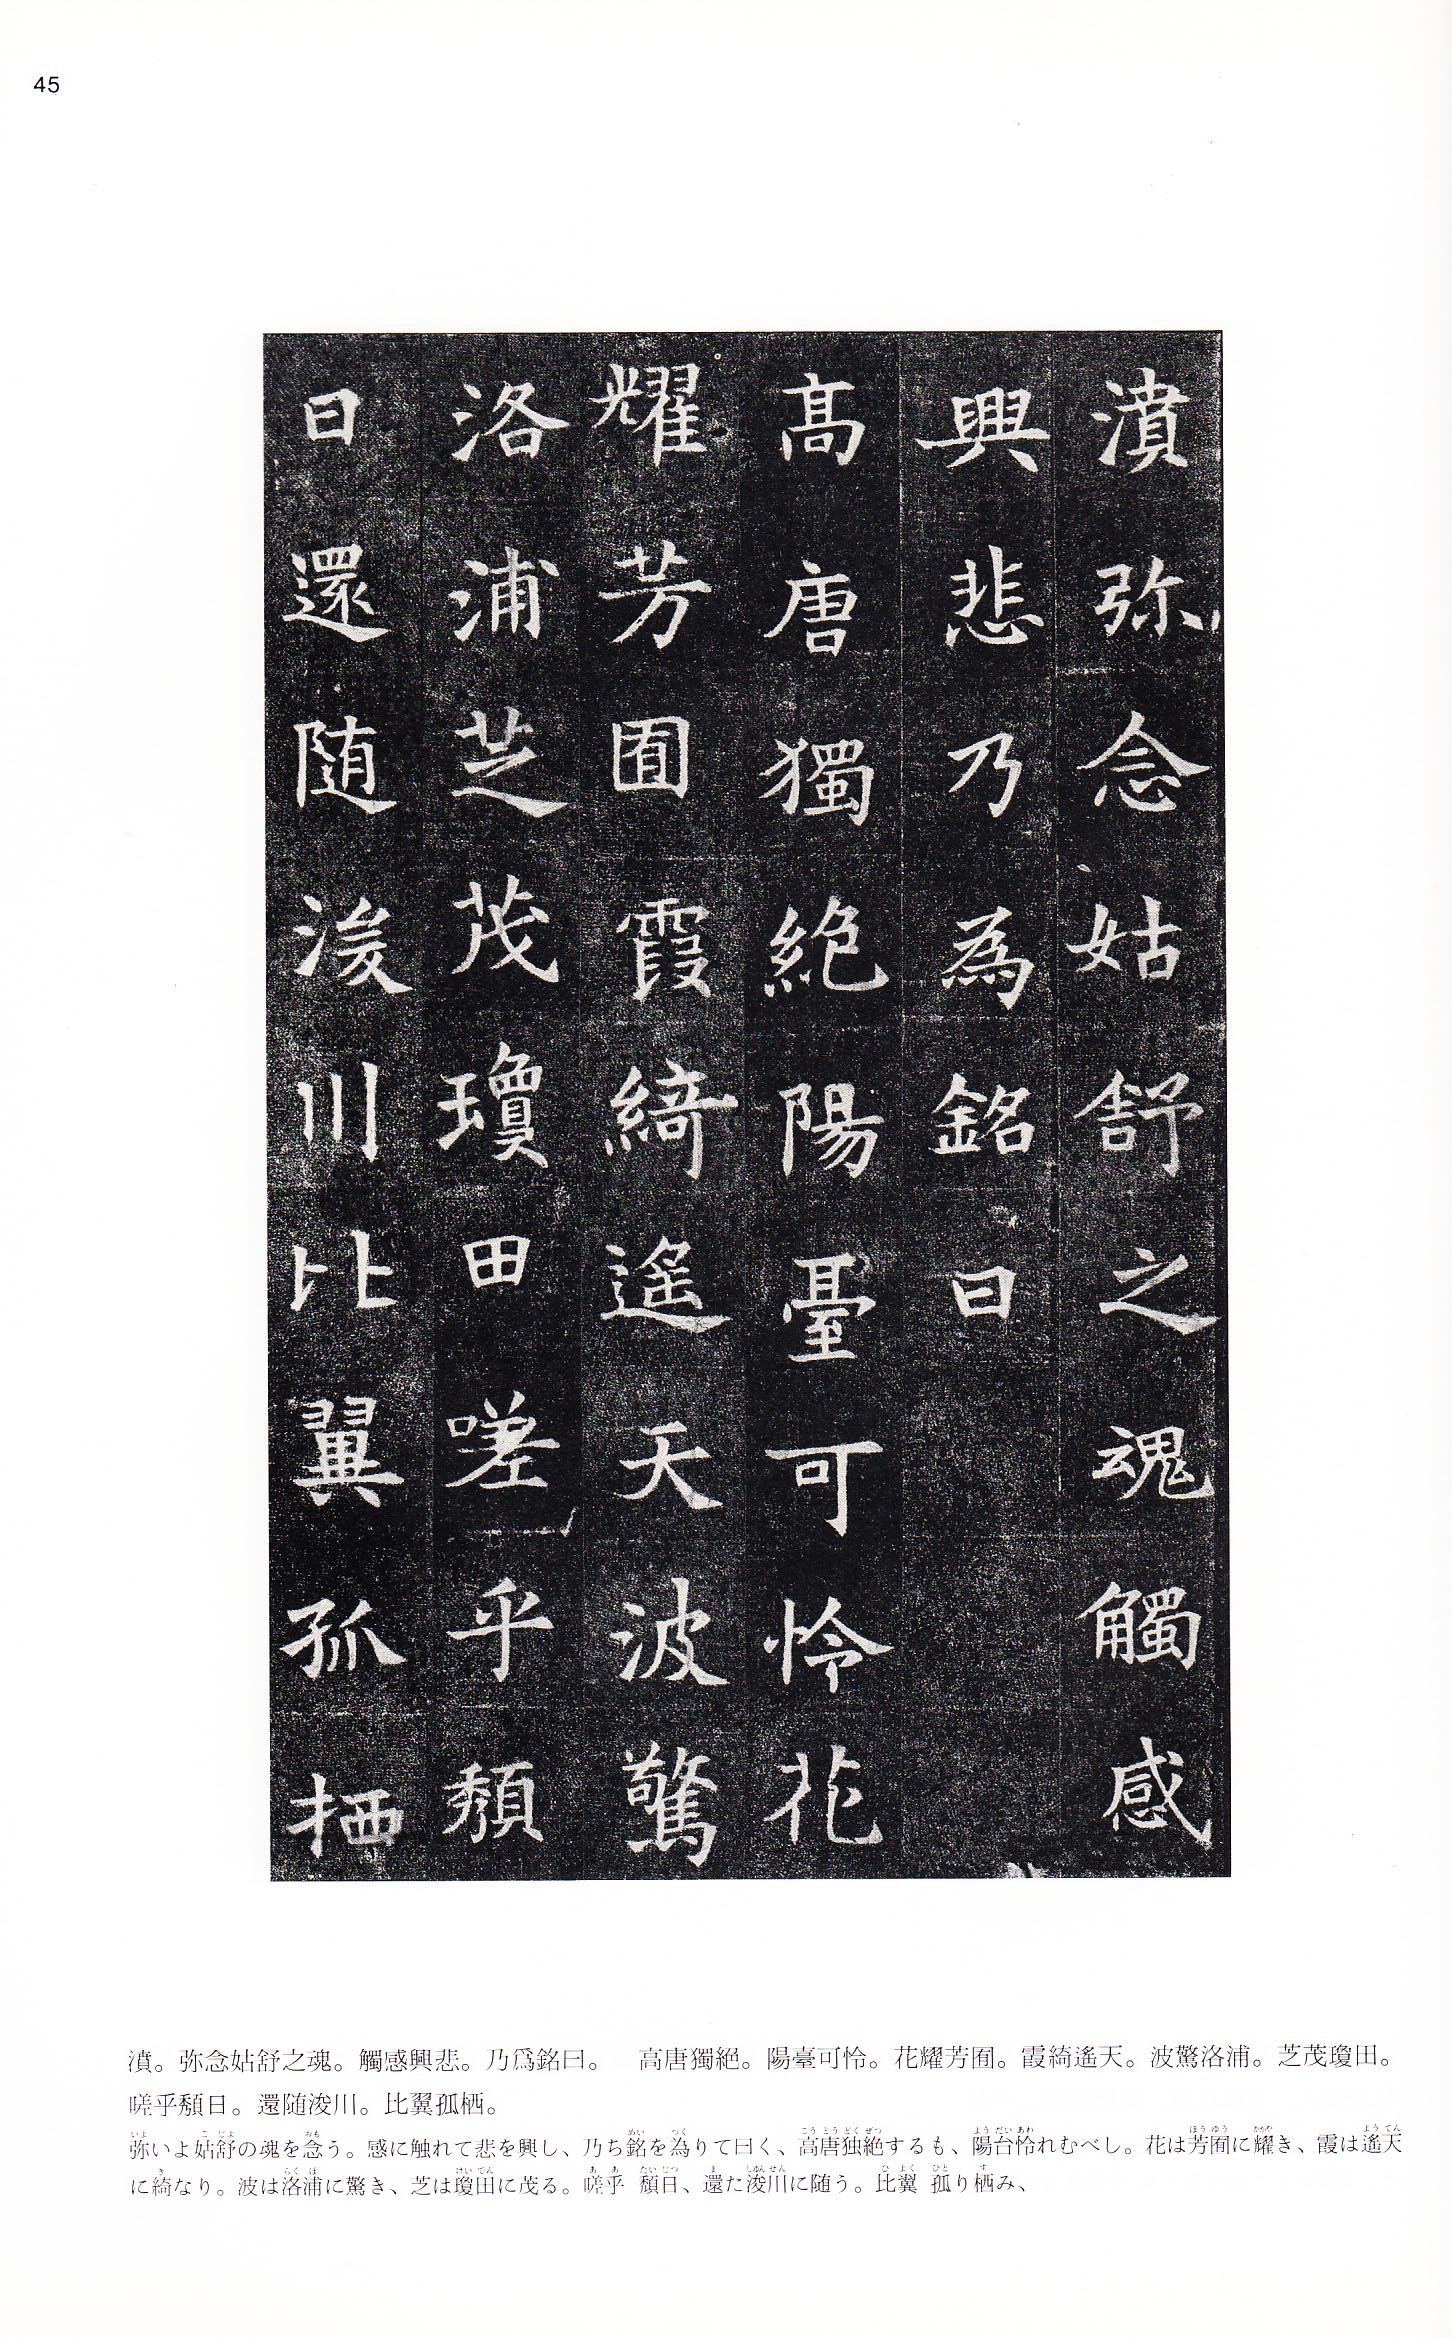 45
濆弥念姑舒之魂觸感
興悲乃為銘曰
髙唐獨絶陽臺可怜花
耀芳囿霞綺遥天波驚
洛浦芝茂瓊田嗟乎頽
日還随浚川比翼孤栖
濆。弥念姑舒之魂。觸感興悲。乃爲銘曰。　高唐獨絕。陽臺可怜。花耀芳囿。霞綺遙天。波驚洛浦。芝茂瓊田。
嗟乎頽日。還随浚川。比翼孤栖。
弥いよ姑舒の魂を念う。感に触れて悲を興し、乃ち銘を為りて曰く、高唐独絶するも、陽台怜れむべし。花は芳囿に耀き、霞は遙天
に綺なり。波は洛浦に驚き、芝は瓊田に茂る。嗟乎 頽日、還た浚川に随う。比翼 孤り栖み、